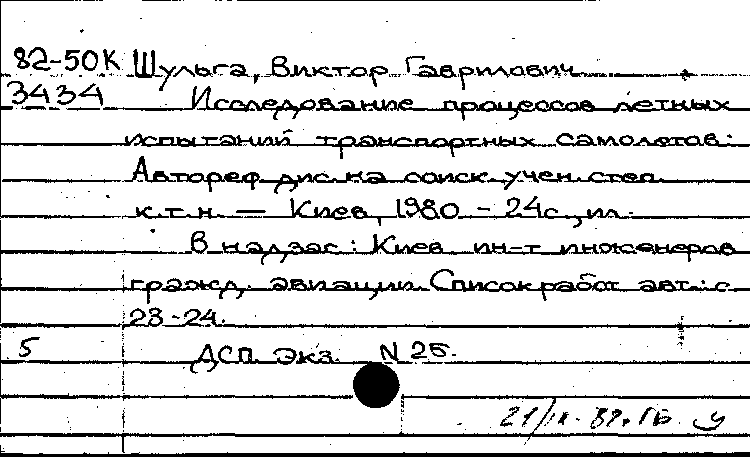 82-50К Шульга, Виктор Гаврилович
3434 Исследование процессов летных
испытаний транспортных самолетов:
Автореф дис. на соиск. учен. степ.
к.т.н. — Киев, 1980 - 24с., ил.
В надзаг: Киев. ин-т инженеров
гражд. авиации. Список работ авт.: с.
23-24.
5 ДСП. Экз. N 25.